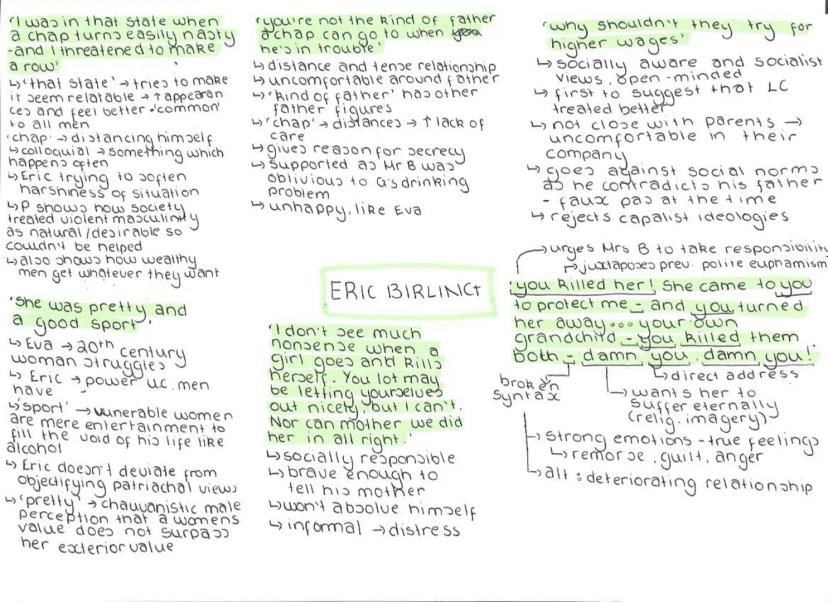 'I was in that state when
a chap turns easily nasty
-and I threatened to make
a row'
↳'that state' → tries to make
it seem relatable → ↑ appearan
ces and feel better · 'common'
to all men
'chap' → distancing himself
↳ colloquial → something which
happens often
↳ Eric trying to soften
harshness of situation
↳ P shows how society
treated violent masculinity
as natural/desirable so
couldn't be helped
↳ also shows how wealthy
men get whatever they want
'She was pretty and
a good sport'
↳ Eva → 20th century
woman struggles
↳ Eric → power u.c. men
have
↳'sport' → vunerable women
are mere entertainment to
fill the void of his life like
alcohol
↳ Eric doesn't deviate from
objectifying patriachal views
↳'pretty' → chauvanistic male
perception that a womens
value does not surpass
her exterior value
'you're not the kind of father
a chap can go to when
he's in trouble'
↳ distance and tense relationship
↳ uncomfortable around father
↳ 'kind of father' has other
father figures
↳ 'chap' → distances → ↑ lack of
care
↳ gives reason for secrecy
↳ supported as Mr B was
oblivious to G's drinking
problem
↳ unhappy, like Eva
ERIC BIRLING
'I don't see much
nonsense when a
girl goes and kills
herself. You lot may
be letting yourselves
out nicely, but I can't.
Nor can mother we did
her in all right.'
↳ socially responsible
↳ brave enough to
tell his mother
↳ won't absolve himself
↳ informal → distress
'why shouldn't they try for
higher wages'
↳ socially aware and socialist
views, open-minded
↳ first to suggest that LC
treated better
↳ not close with parents →
uncomfortable in their
company
↳ goes against social norms
as he contradicts his father
- faux pas at the time
↳ rejects capalist ideologies
→ urges Mrs B to take responsibility
↳ juxtaposes prev. polite euphamism
'you killed her! She came to you
to protect me - and you turned
her away... your own
grandchild - you killed them
both - damn you, damn you!
broken
syntax
↳ direct address
↳ wants her to
suffer eternally
(relig. imagery)
↳ strong emotions - true feelings
↳ remorse, guilt, anger
↳ alt : deteriorating relationship